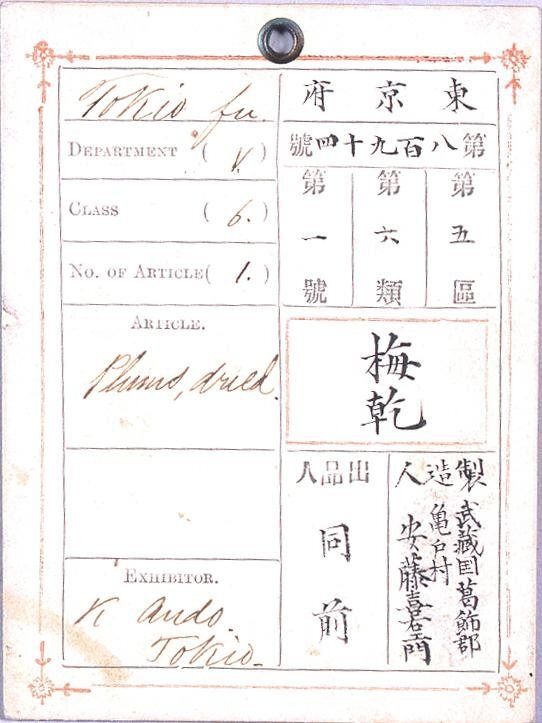 Tokio fu.
DEPARTMENT ( V. )
CLASS ( 6. )
NO. OF ARTICLE ( 1. )
ARTICLE.
Plums, dried.
EXHIBITOR.
K Ando.
Tokio.
東京府
第八百九十四號
第五區
第六類
第一號
梅乾
製造人
武蔵国葛飾郡
亀戸村
安藤喜右エ門
出品人
同前